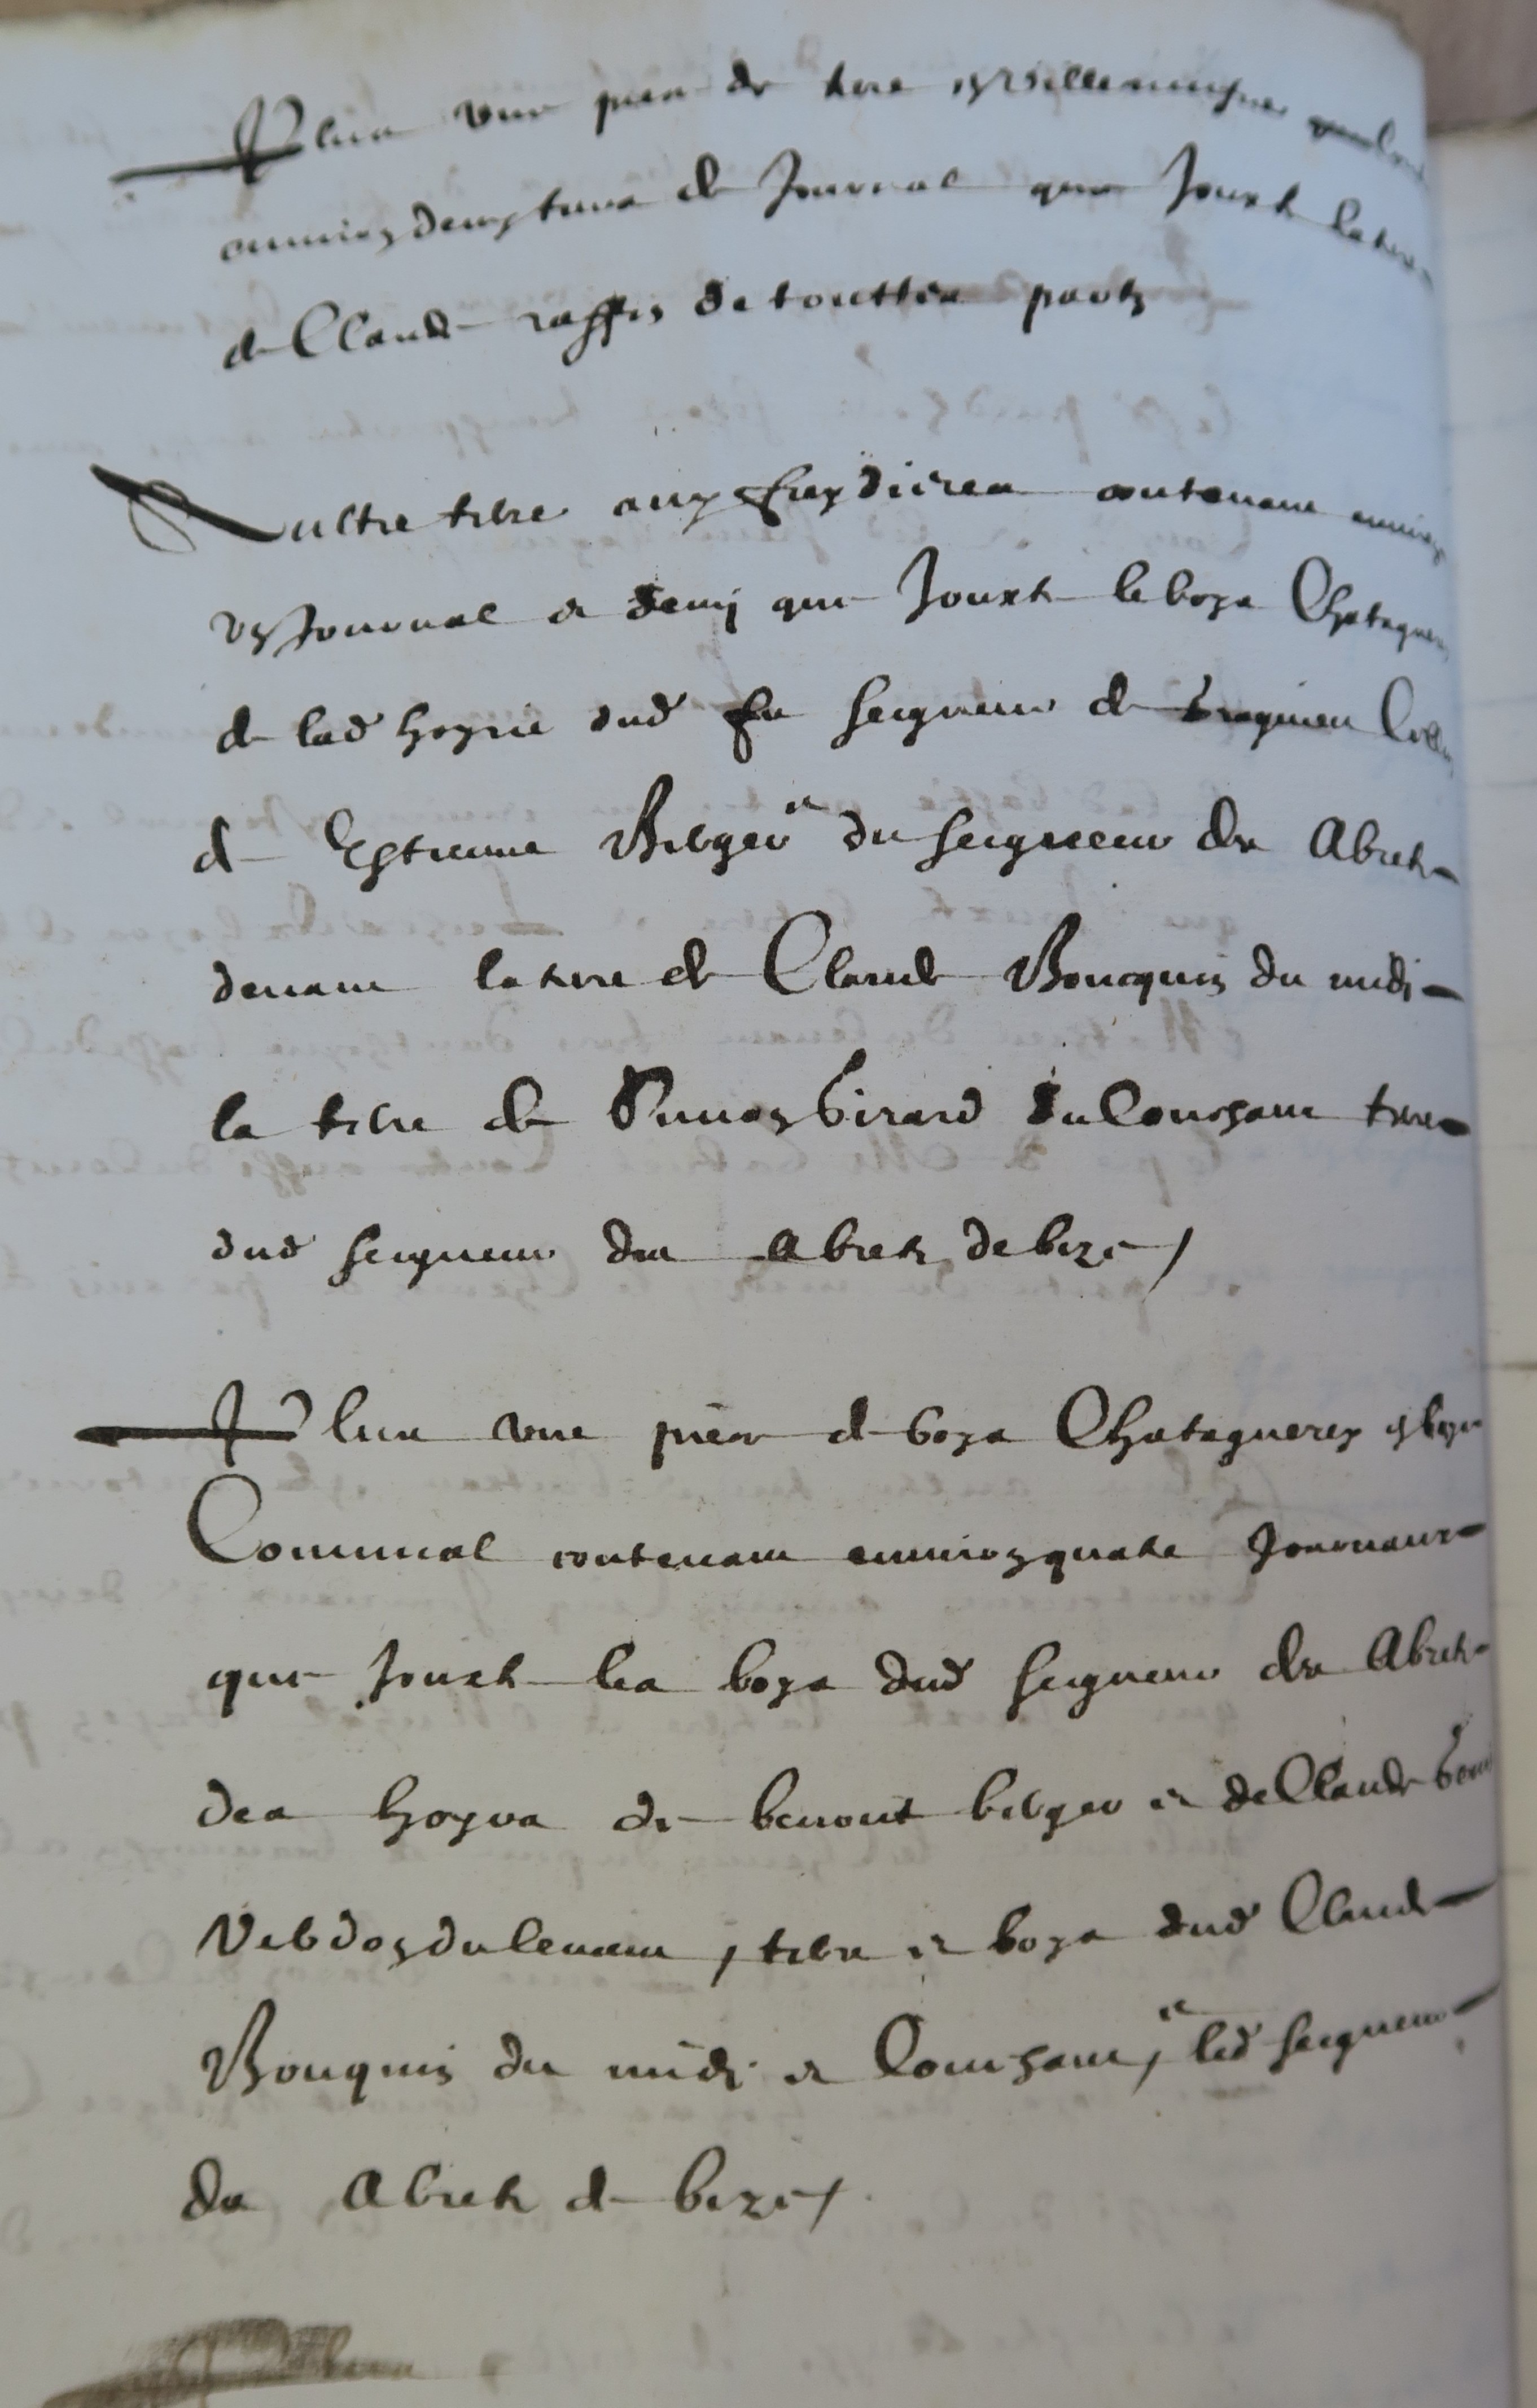 Plus une piece de terre en Villeneufve
environ deux tiers de Journal que Jouxte la terre
de Claude raffin de touttes partz
Aultre terre aux contenant environ
un Journal et demy que Jouxte le boys Chatagner
de lad hoyrie dud seigneur de
de Estienne Berger et du seigneur des Abretz
devant la terre de Claude Boucquin du midi
la terre de Girard du Couchant terre
dud seigneur des Abretz de bize /
Plus une piece de boys Chatagnerey en boys
Communal contenant environ quatre Journaux
que Jouxte les boys dud seigneur des Abretz
des hoyrs de benoit berger et de Claude
Verdon du levant / terre et boys dud Claude
Bouquin du midi et Couchant / et led seigneur
des Abretz de bize /.
Plus